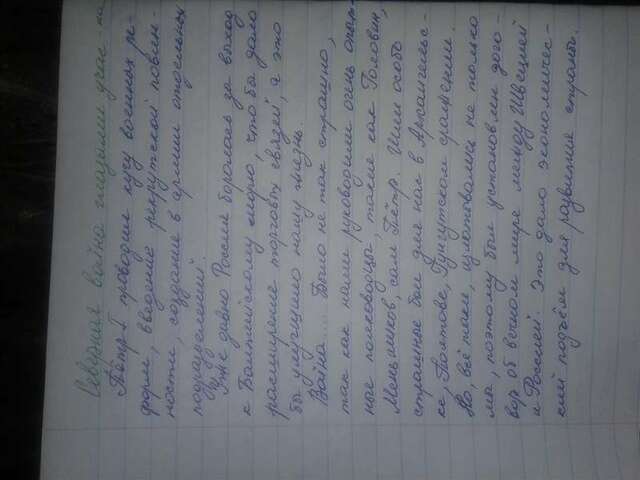 Северная война глазами учас-
Пётр I проводил кучу военных ре-
форм, введение рекрутской повин-
ности, создание в армии отдельных
подразделений.
Уже давно Россия боролась за выход
к Балтийскому морю, что бы дало
расширение торговых связей, а это
бы улучшило нашу жизнь.
Война... Было не так страшно,
так как нами руководили очень опыт-
ные полководцы, такие как Головин,
Меньшиков, сам Пётр. Шли особо
страшные бои для нас в Архангельс-
ке Полтаве, Гунгутском сражении.
Но, всё таки, измотались не только
мы, поэтому был установлен дого-
вор об вечном мире между Швецией
и Россией. Это дало экономичес-
кий подъём для развития страны.